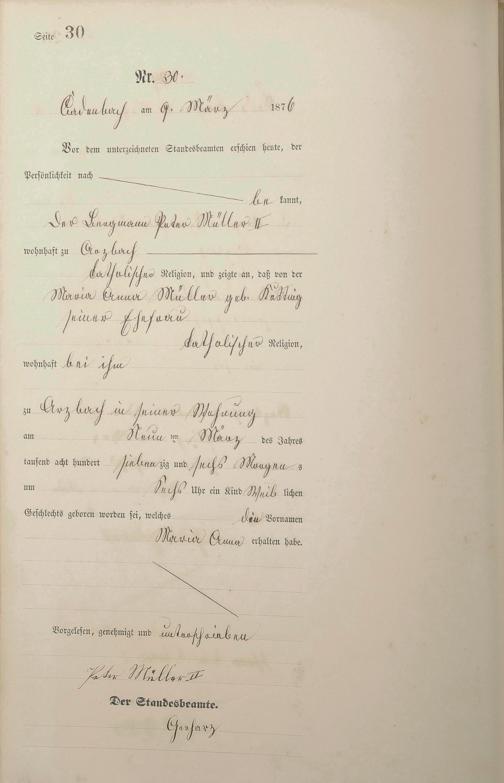 Seite 30
Nr. 30.
Cadenbach am 9. März 1876
Vor dem unterzeichneten Standesbeamten erschien heute, der
Persönlichkeit nach
be kannt,
der Bergmann Peter Müller II
wohnhaft zu Arzbach
katholischer Religion, und zeigte an, daß von der
Maria Anna Müller geb.
seiner Ehefrau
katholischer Religion,
wohnhaft bei ihm
zu Arzbach in seiner Wohnung
am Neun ten März des Jahres
tausend acht hundert siebenzig und sechs Morgen s
um Sechs Uhr ein Kind Weib lichen
Geschlechts geboren worden sei, welches den Vornamen
Maria Anna erhalten habe.
Vorgelesen, genehmigt und unterschrieben
Peter Müller II
Der Standesbeamte.
Gerharz